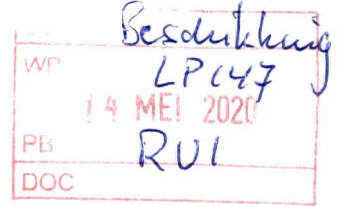 Beschikking
WP LP147
14 MEI 2020
PB RUI
DOC